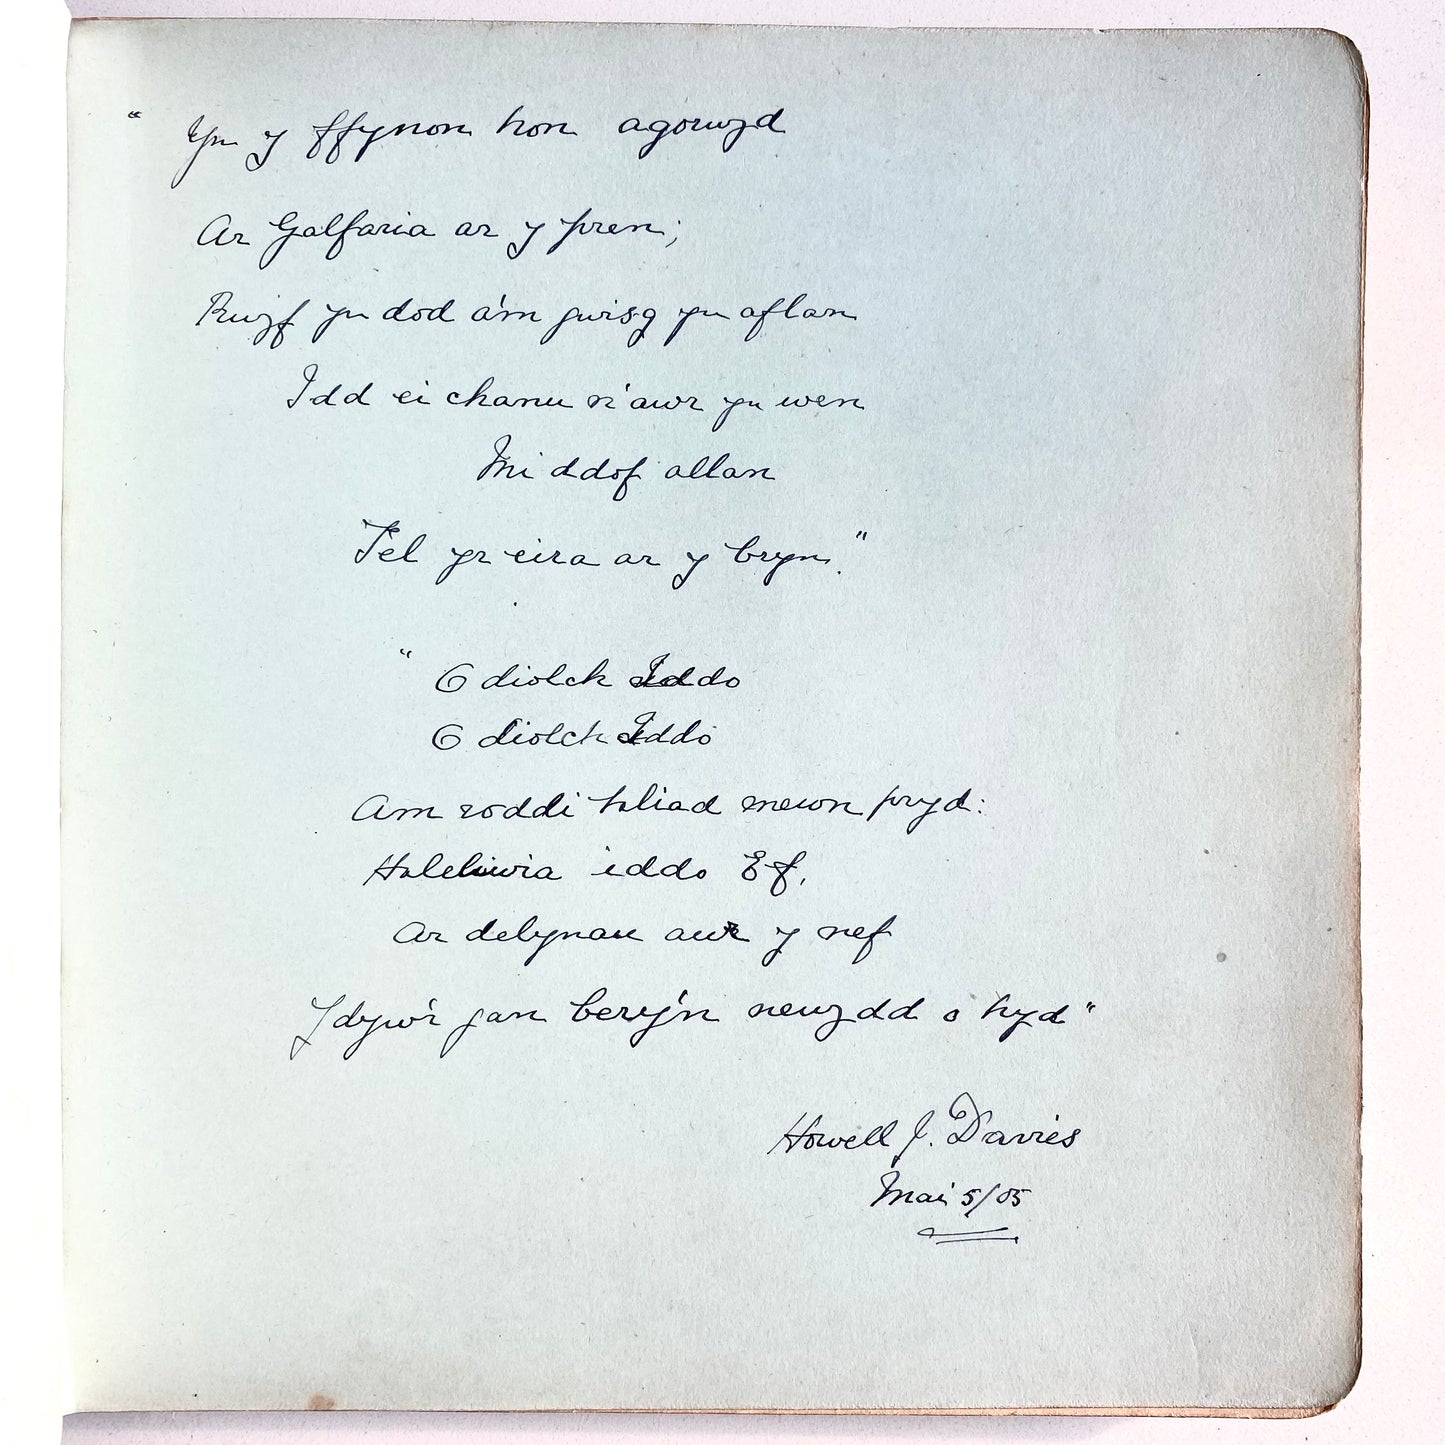 " Yn y ffynon hon agorwyd
Ar Galfaria ar y pren;
Rwyf yn dod a'm gwisg yn aflan
Idd ei chanu n'awr yn wen
Mi ddof allan
Fel yr eira ar y bryn."
" O diolch Iddo
O diolch Iddo
Am roddi haliad mewn pryd:
Haleliwia iddo Ef,
Ar delynau aur y nef
Ydyw'r gan bery'n newydd o hyd"
Howell J. Davies
Mai 5/05